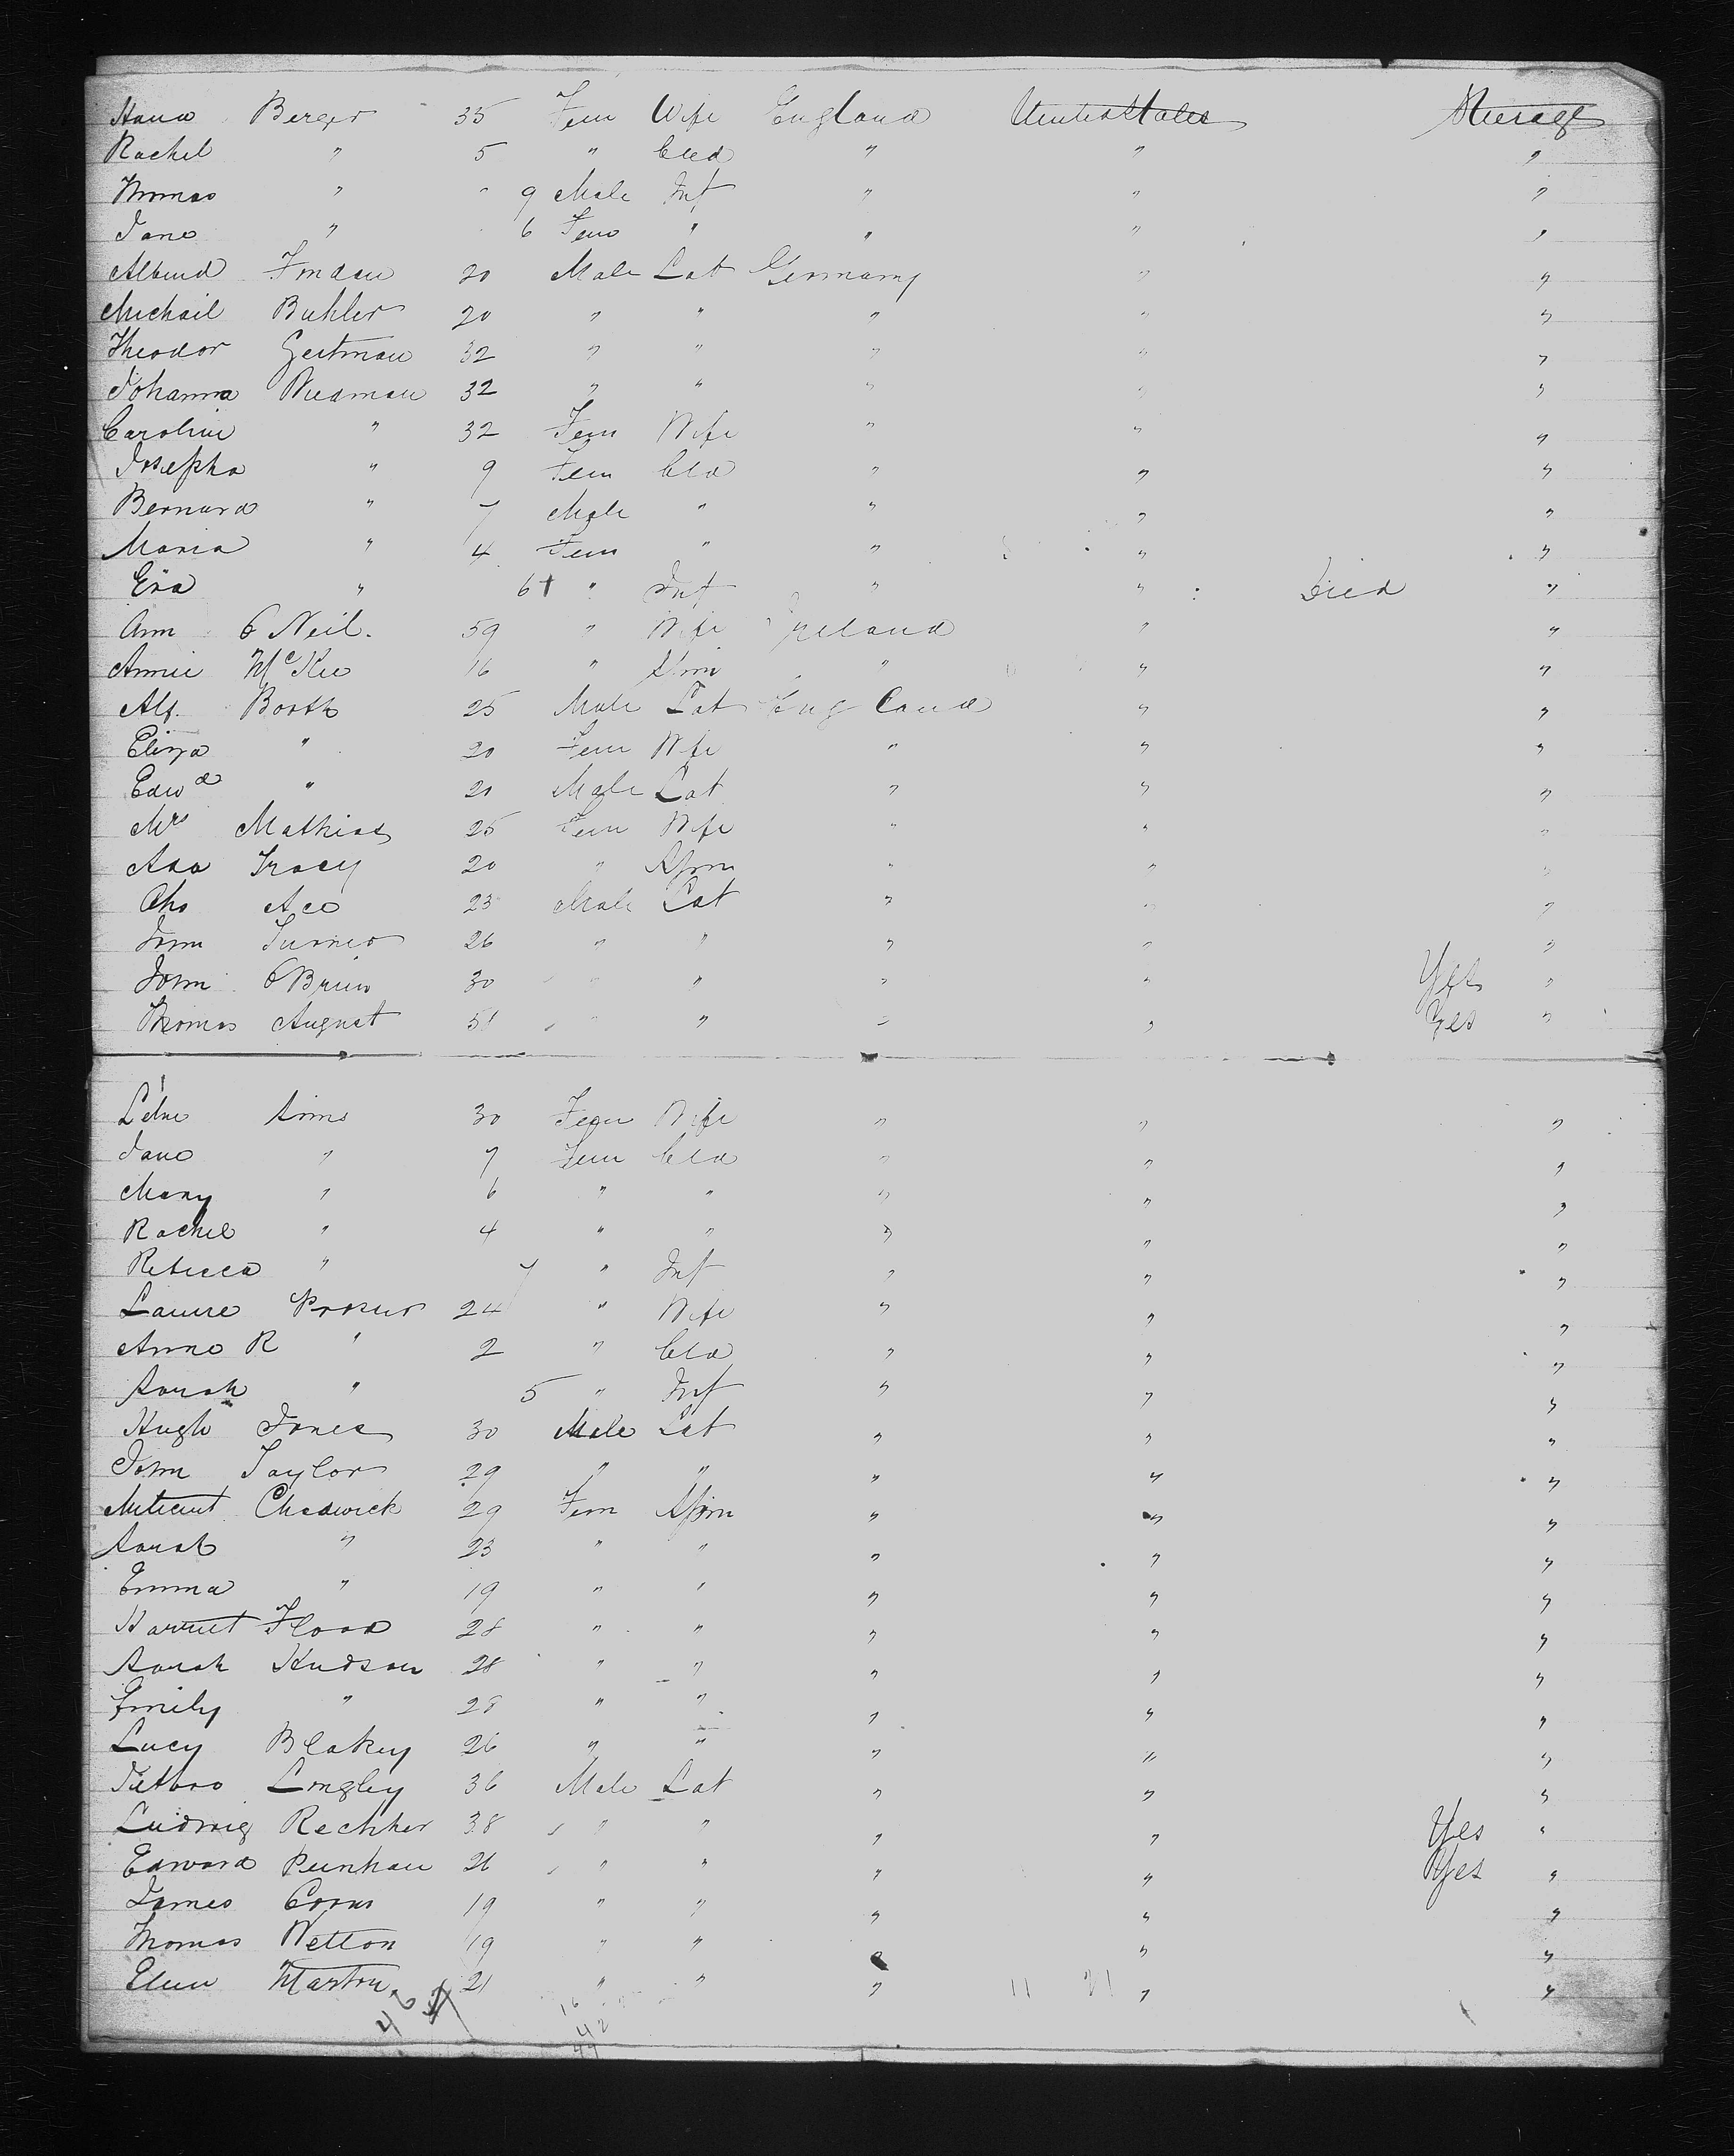 Hana Berger 35 Fem Wife England United States Steerage
Rachel " 5 " Cld " " "
Thomas " " 9 Male Inf " " "
Jane " 6 Fem " " " "
20 Male Lab Germany " "
Michail Buhler 20 " " " " "
Theodor Geitman 32 " " " " "
Johanna Wiedman 32 " " " " "
Caroline " 32 Fem Wife " " "
Josepha " 9 Fem Cld " " "
Bernard " 7 Male " " " "
Maria " 4 Fem " " " "
Eva " 6 + " Inf " " Died "
Ann O Neil. 59 " Wife Ireland " "
Annie McKee 16 " Spin " " "
Alf. Booth 25 Male Lab England " "
Eliza " 20 Fem Wife " " "
Edwd " 20 Male Lab " " "
Mrs Mathias 25 Fem Wife " " "
Ada Tracy 20 " Spin " " "
Chs Ace 23 Male Lab " " "
John Turner 26 " " " " "
John O Brien 30 " " " " Yes "
Thomas August 51 " " " " Yes "
Sims 30 Fem Wife " " "
Jane " 7 Fem Cld " " "
Mary " 6 " " " " "
Rachel " 4 " " " " "
Rebecca " 7 " Inf " " "
Laure Prosser 24 " Wife " " "
Anne R " 2 " Cld " " "
Sarah " 5 " Inf " " "
Hugh Jones 30 Male Lab " " "
John Taylor 29 " " " " "
Milicent Chadwick 29 Fem Spin " " "
Sarah " 23 " " " " "
Emma " 19 " " " " "
Harriet Flood 28 " " " " "
Sarah Hudson 28 " " " " "
Emily " 28 " " " " "
Lucy Blakey 26 " " " " "
Jethro Longley 36 Male Lab " " "
Ludwig Rechher 38 " " " " Yes "
Edward 21 " " " " Yes "
James 19 " " " " "
Thomas Wetton 19 " " " " "
Ellen Marton 21 " " " 11 21 " "
46
42